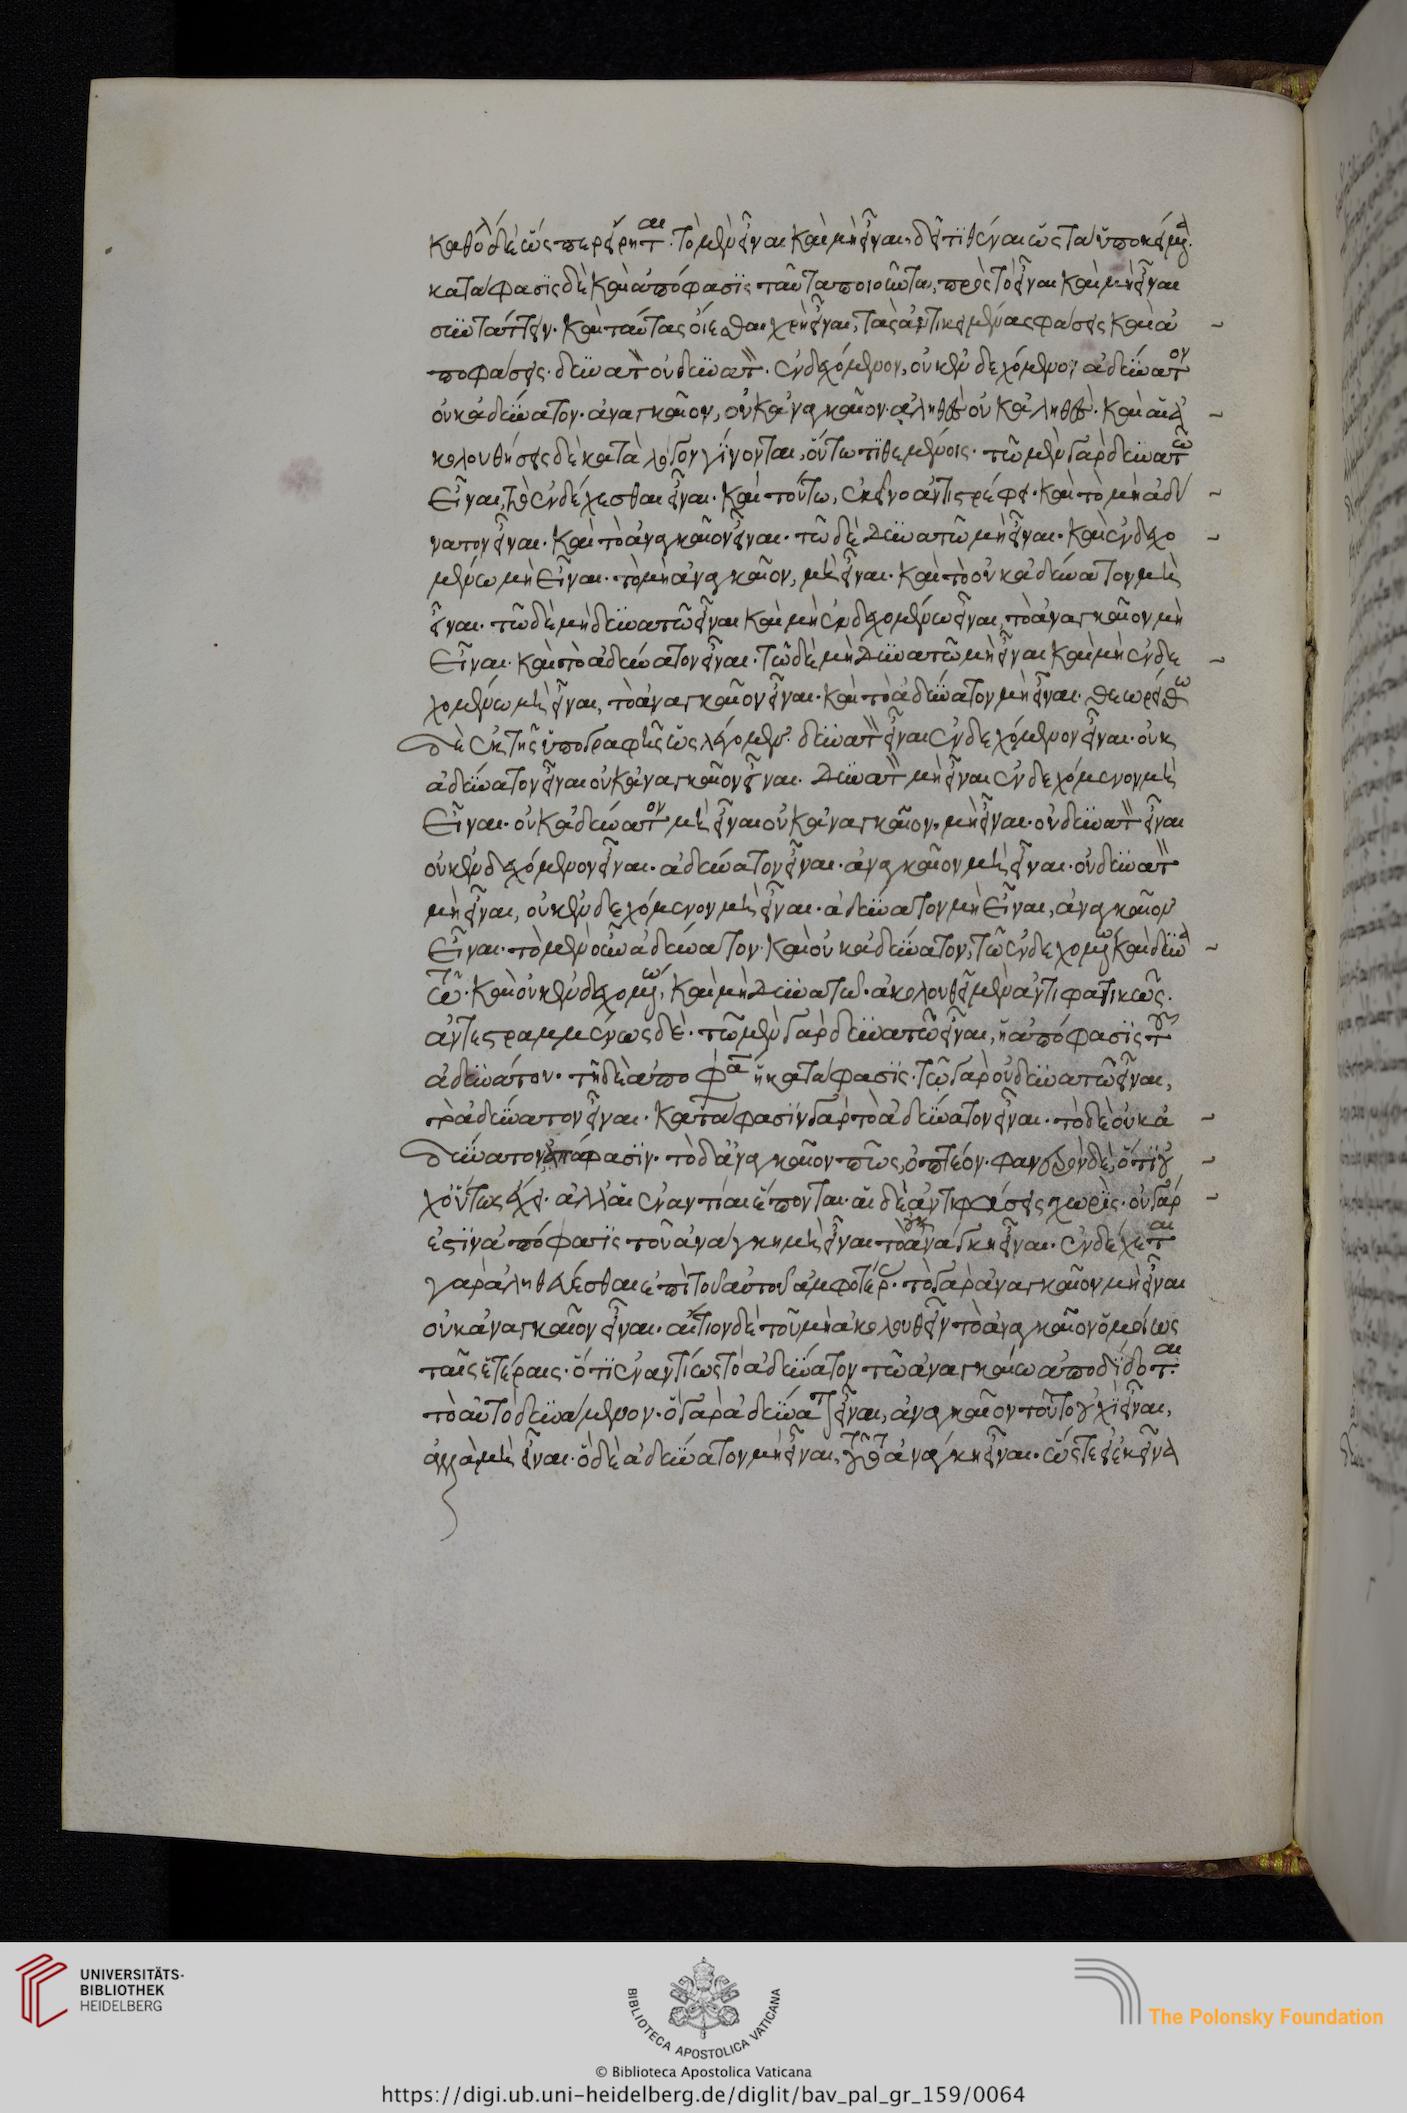 καθόλου δὲ ὥσπερ εἴρηται. τὸ μὲν εἶναι καὶ μὴ εἶναι, δεῖ τιθέναι ὡς τὰ ὑποκείμενα.
κατάφασις δὲ καὶ ἀπόφασις ταῦτα ποιοῦντα, πρὸς τὸ εἶναι καὶ μὴ εἶναι
συντάττειν. καὶ ταύτας οἴεσθαι χρὴ εἶναι, τὰς ἀντικειμένας φάσεις καὶ ἀ
ποφάσεις. δυνατὸν οὐ δυνατόν. ἐνδεχόμενον, οὐκ ἐνδεχόμενον ἀδύνατον
οὐκ ἀδύνατον. ἀναγκαῖον, οὐκ ἀναγκαῖον. ἀληθὲς οὐκ ἀληθές. καὶ αἱ ἀ
κολουθήσεις δὲ κατὰ λόγον γίνονται, οὕτω τιθεμένοις. τῷ μὲν γὰρ δυνατῷ
εἶναι, τὸ ἐνδέχεσθαι εἶναι. καὶ τούτω, ἐκεῖνο ἀντιστρέφει. καὶ τὸ μὴ ἀδύ
νατον εἶναι. καὶ τὸ ἀναγκαῖον εἶναι. τῷ δὲ δυνατῷ μὴ εἶναι. καὶ ἐνδεχο
μένω μὴ εἶναι. τὸ μὴ ἀναγκαῖον, μὴ εἶναι. καὶ τὸ οὐκ ἀδύνατον μὴ
εἶναι. τῷ δὲ μὴ δυνατῷ εἶναι καὶ μὴ ἐνδεχομένω εἶναι, τὸ ἀναγκαῖον μὴ
εἶναι. καὶ τὸ ἀδύνατον εἶναι. τῷ δὲ μὴ δυνατῷ μὴ εἶναι καὶ μὴ ἐνδε
χομένω μὴ εἶναι, τὸ ἀναγκαῖον εἶναι. καὶ τὸ ἀδύνατον μὴ εἶναι. θεωρείσθω
δὲ ἐκ τῆς ὑπογραφῆς ὡς λέγομεν. δυνατὸν εἶναι ἐνδεχόμενον εἶναι. οὐκ
ἀδύνατον εἶναι οὐκ ἀναγκαῖον εἶναι. δυνατὸν μὴ εἶναι ἐνδεχόμενον μὴ
εἶναι. οὐκ ἀδύνατον μὴ εἶναι οὐκ ἀναγκαῖον, μὴ εἶναι. οὐ δυνατὸν εἶναι
οὐκ ἐνδεχόμενον εἶναι. ἀδύνατον εἶναι. ἀναγκαῖον μὴ εἶναι. οὐ δυνατὸν
μὴ εἶναι, οὐκ ἐνδεχόμενον μὴ εἶναι. ἀδύνατον μὴ εἶναι, ἀναγκαῖον
εἶναι. τὸ μὲν οὖν ἀδύνατον. καὶ οὐκ ἀδύνατον, τῷ ἐνδεχομένω καὶ δυνα
τῷ. καὶ οὐκ ἐνδεχομένω, καὶ μὴ δυνατῷ. ἀκολουθεῖ μὲν ἀντιφατικῶς.
ἀντεστραμμένως δὲ. τῷ μὲν γὰρ δυνατῷ εἶναι, ἡ ἀπόφασις τοῦ
ἀδυνάτου. τῇ δὲ ἀποφάσει ἡ κατάφασις. τῷ γὰρ οὐ δυνατῷ εἶναι,
τὸ ἀδύνατον εἶναι. κατάφασιν γὰρ τὸ ἀδύνατον εἶναι. τὸ δὲ οὐκ ἀ
δύνατον ἀπόφασιν. τὸ δ' ἀναγκαῖον πῶς, ὀπτέον. φανερὸν δὲ, ὅτι οὐ
χ οὕτως ἔχει. ἀλλ' αἱ ἐναντίαι ἕπονται. αἱ δὲ ἀντιφάσεις χωρίς. οὐ γάρ
ἐστιν ἀπόφασις τοῦ ἀνάγκη μὴ εἶναι τὸ οὐκ ἀνάγκη εἶναι. ἐνδέχεται
γὰρ ἀληθεύεσθαι ἐπὶ τοῦ αὐτοῦ ἀμφοτέρας. τὸ γὰρ ἀναγκαῖον μὴ εἶναι
οὐκ ἀναγκαῖον εἶναι. αἴτιον δὲ τοῦ μὴ ἀκολουθεῖν τὸ ἀναγκαῖον ὁμοίως
ταῖς ἑτέραις. ὅτι ἐναντίως τὸ ἀδύνατον τῷ ἀναγκαίω ἀποδίδοται.
τὸ αὐτὸ δυνάμενον. ὃ γὰρ ἀδύνατον εἶναι, ἀναγκαῖον τοῦτο οὐχὶ εἶναι,
ἀλλὰ μὴ εἶναι. ὃ δὲ ἀδύνατον μὴ εἶναι, τοῦτο ἀνάγκη εἶναι. ὥστε εἰ ἐκεῖνα
UNIVERSITÄTS-
BIBLIOTHEK
HEIDELBERG
BIBLIOTECA APOSTOLICA VATICANA
The Polonsky Foundation
© Biblioteca Apostolica Vaticana
https://digi.ub.uni-heidelberg.de/diglit/bav_pal_gr_159/0064